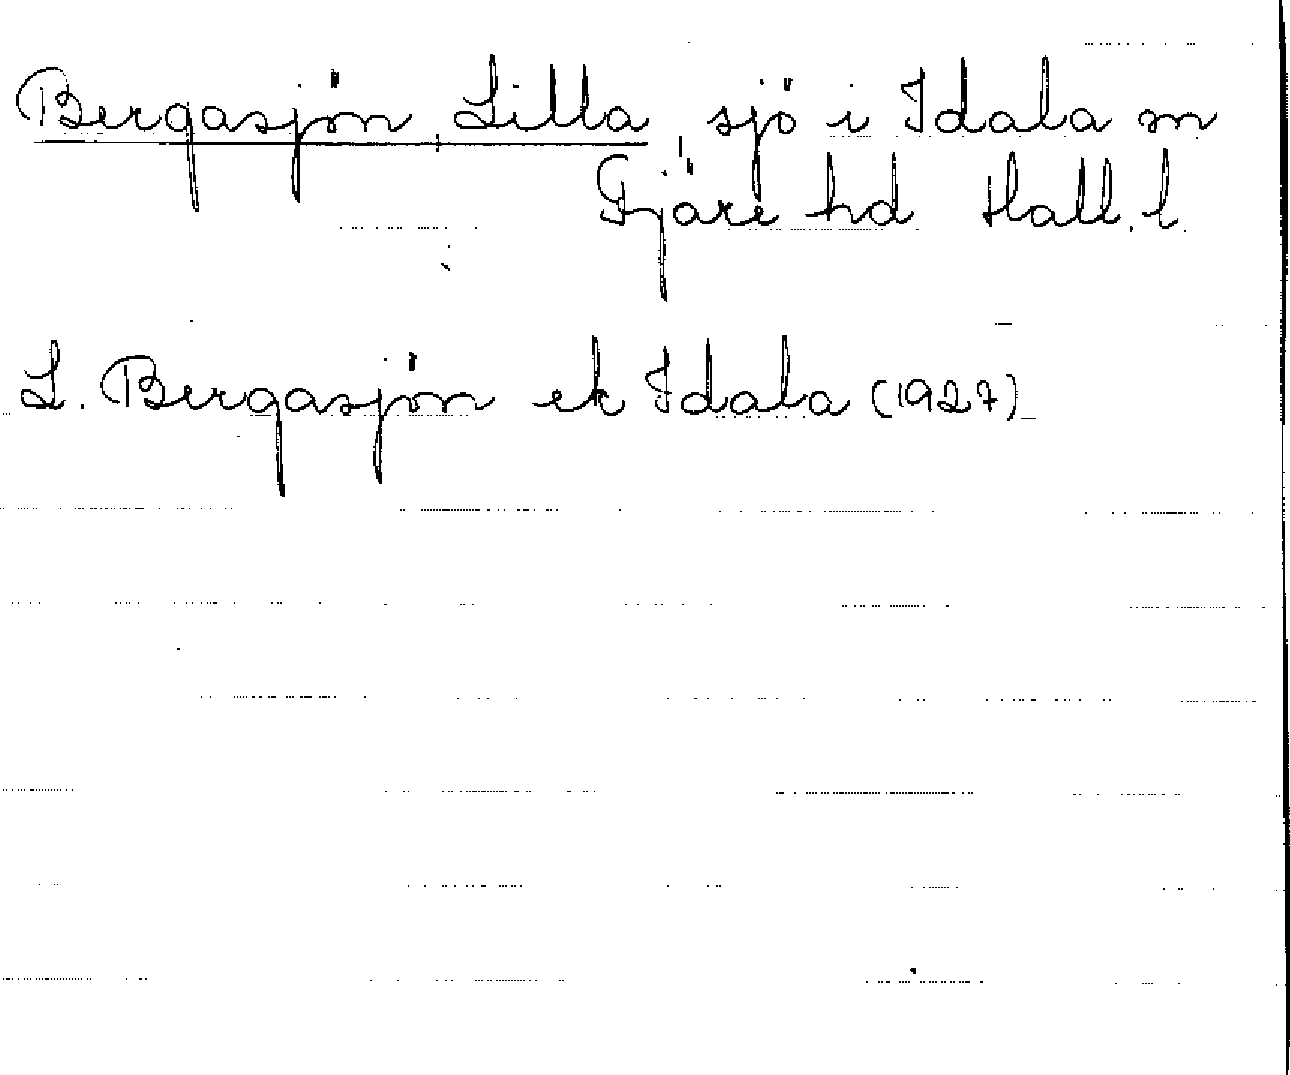 Bergasjön, Lilla, sjö i Idala sn
Fjäre hd Hall. l.
L. Bergasjön ek Idala (1927)